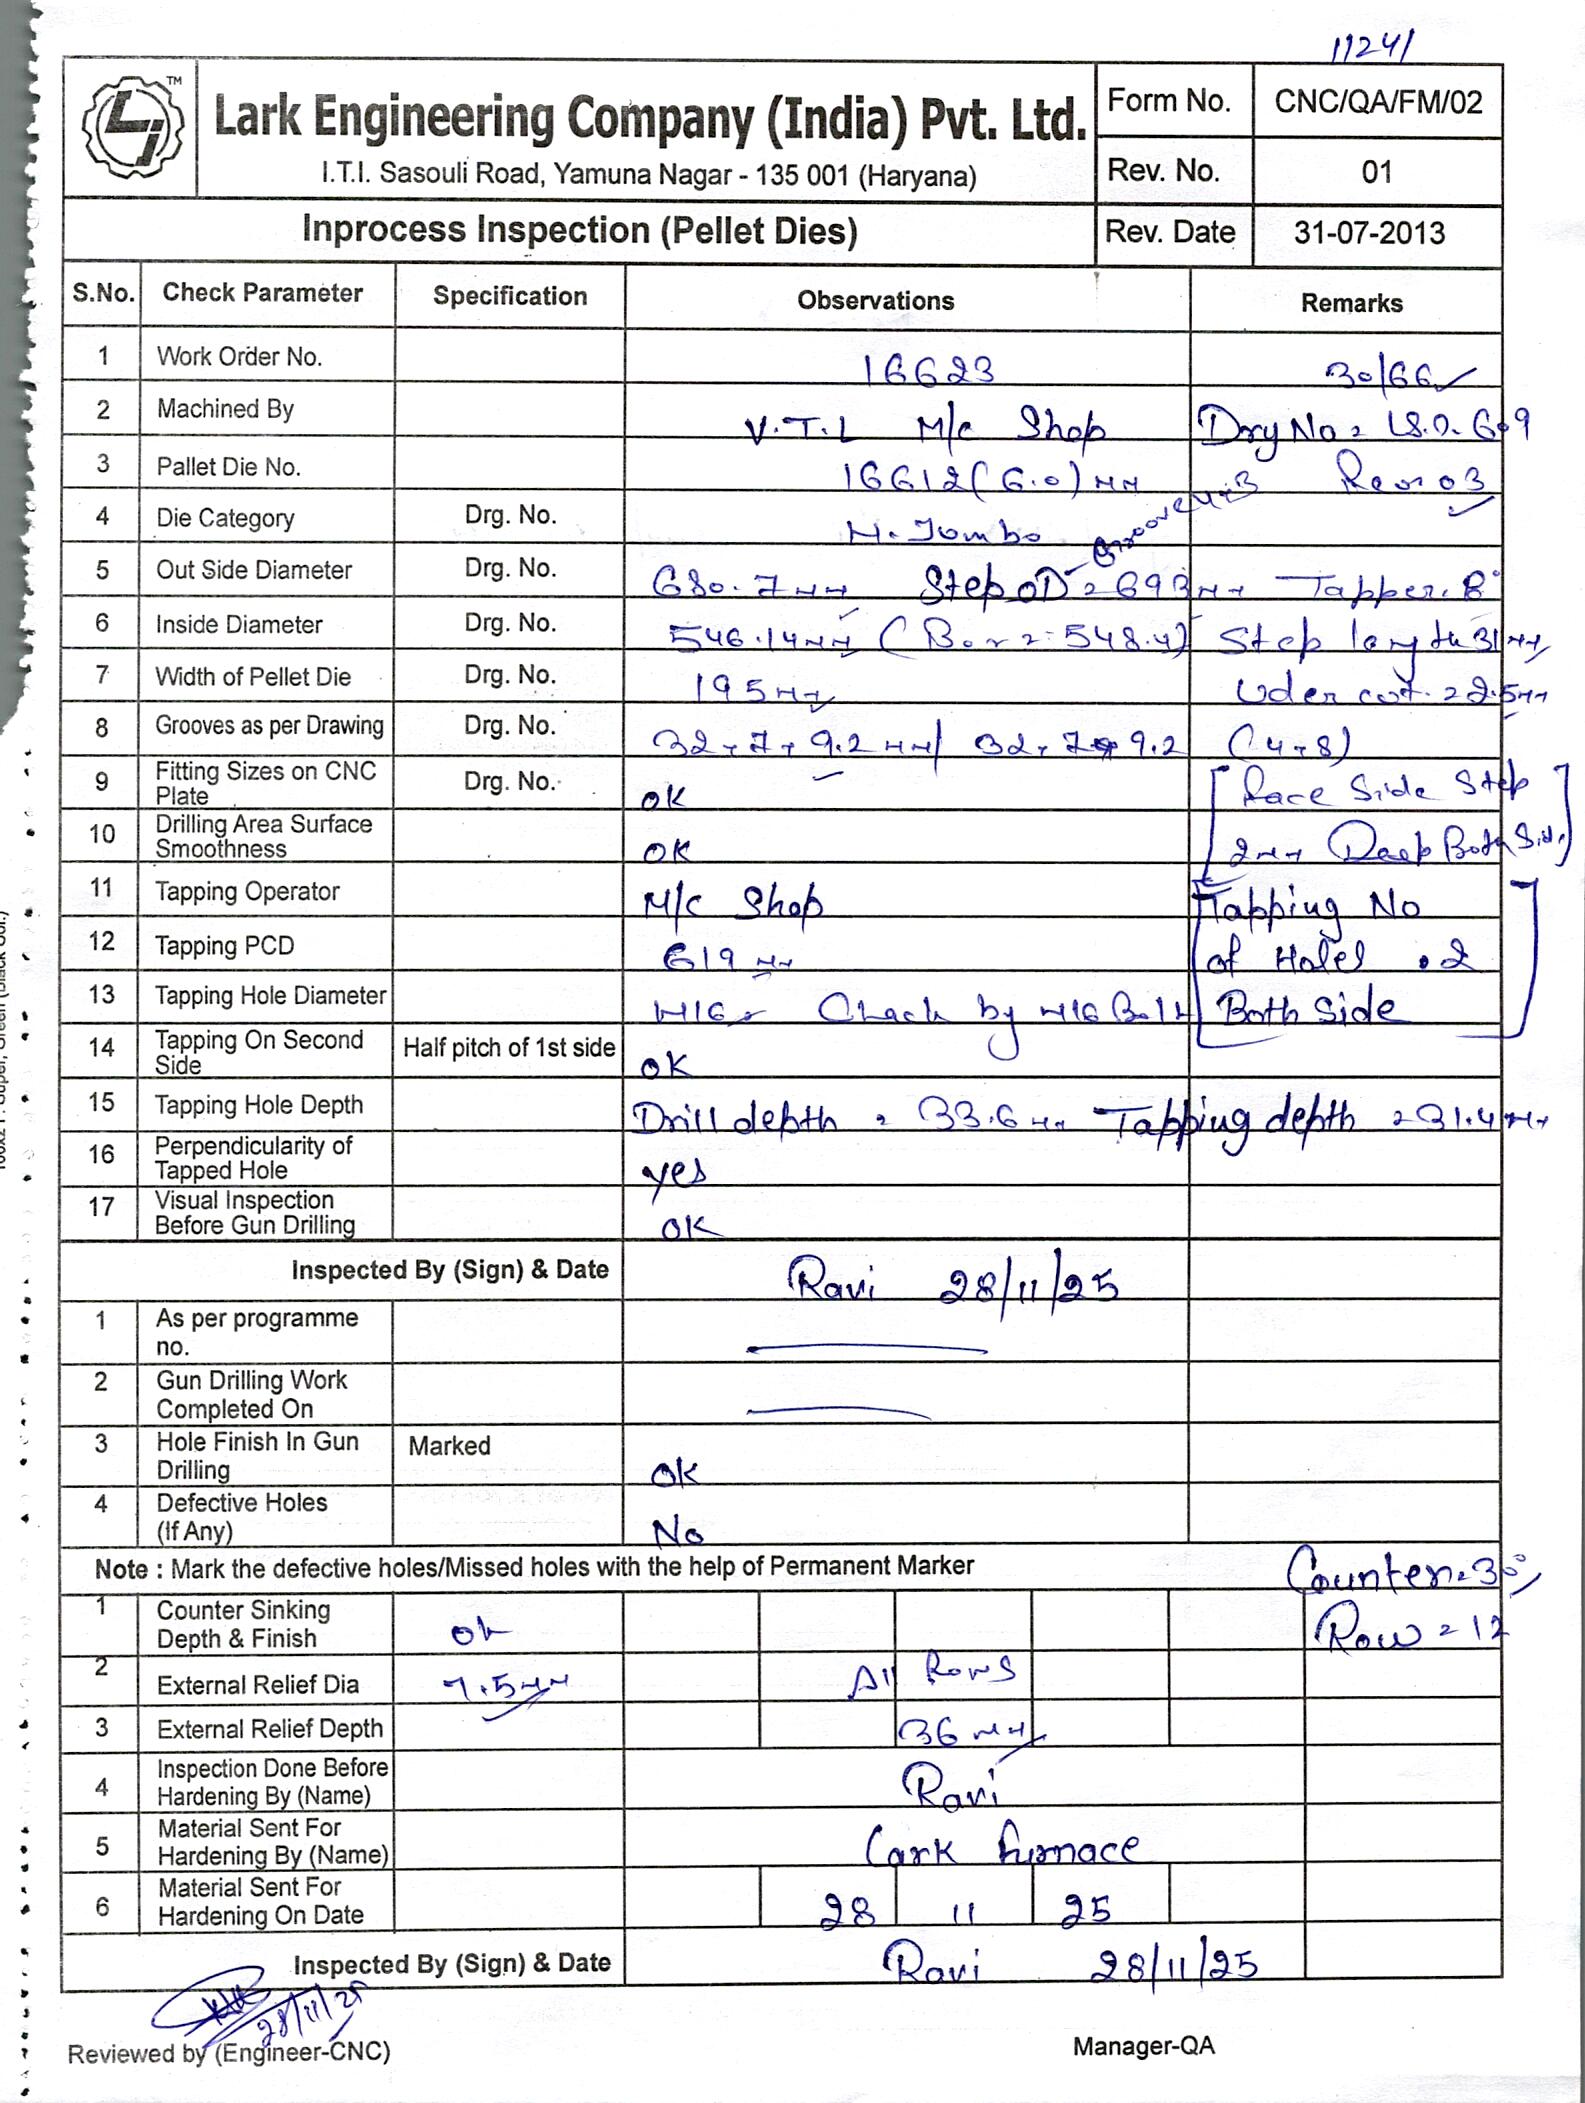 11241
TM
Lark Engineering Company (India) Pvt. Ltd.
I.T.I. Sasouli Road, Yamuna Nagar - 135 001 (Haryana)
Form No. CNC/QA/FM/02
Rev. No. 01
Inprocess Inspection (Pellet Dies) Rev. Date 31-07-2013
S.No. Check Parameter Specification Observations Remarks
1 Work Order No. 16623 30/66
2 Machined By V.T.L M/c Shop Drg No =
3 Pallet Die No. 16612 (6.0) mm Rev = 03
4 Die Category Drg. No. H. Jumbo Groove 4x3
5 Out Side Diameter Drg. No. 680.7mm Step OD = 693mm Tapper. 8°
6 Inside Diameter Drg. No. 546.14mm (Bor = 548.4) Step length 31mm
7 Width of Pellet Die Drg. No. 195mm Uder cut = 2.5mm
8 Grooves as per Drawing Drg. No. 32x7x9.2mm/ 32x7x9.2 (4x8)
9 Fitting Sizes on CNC Plate Drg. No. OK [Face Side Step
10 Drilling Area Surface Smoothness OK 2mm Deep Both Sid.]
11 Tapping Operator M/c Shop [Tapping No
12 Tapping PCD 619 mm of Holes = 2
13 Tapping Hole Diameter M16 Chack by M16 Bolt Both Side]
14 Tapping On Second Side Half pitch of 1st side OK
15 Tapping Hole Depth Drill depth = 33.6mm Tapping depth = 31.4mm
16 Perpendicularity of Tapped Hole yes
17 Visual Inspection Before Gun Drilling OK
Inspected By (Sign) & Date Ravi 28/11/25
1 As per programme no.
2 Gun Drilling Work Completed On
3 Hole Finish In Gun Drilling Marked OK
4 Defective Holes (If Any) No
Note : Mark the defective holes/Missed holes with the help of Permanent Marker Counter = 30°
1 Counter Sinking Depth & Finish ok Row = 12
2 External Relief Dia 7.5mm All Rows
3 External Relief Depth 36 mm
4 Inspection Done Before Hardening By (Name) Ravi
5 Material Sent For Hardening By (Name) Lark furnace
6 Material Sent For Hardening On Date 28 11 25
Inspected By (Sign) & Date Ravi 28/11/25
28/11/25
Reviewed by (Engineer-CNC) Manager-QA